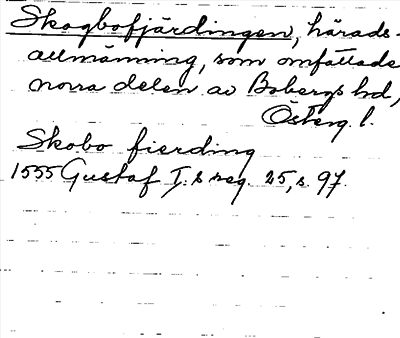 Skogbofjärdingen, härads-
allmänning, som omfattade
norra delen av Bobergs hd,
Österg. l.
Skobo fierding
1555 Gustaf I:s reg. 25, s. 97.